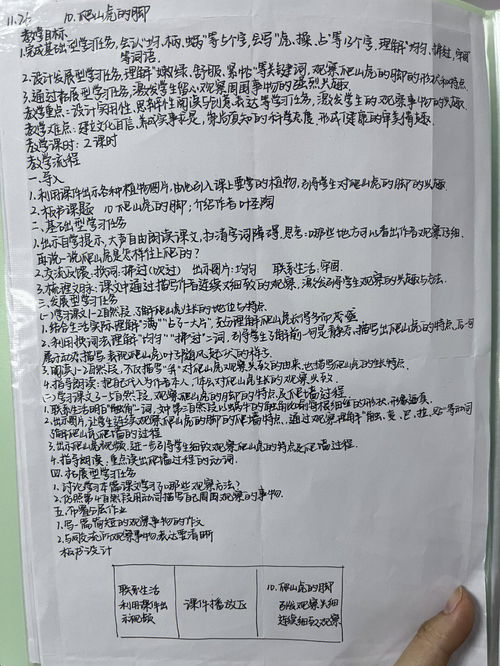 11.21 10.爬山虎的脚
教学目标
1.完成基础型学习任务,会认“均、柄、蜗”等5个字,会写“虎、操、占”等13个字,理解“均匀、拂过、牢固”
等词语。
2.设计发展型学习任务,理解“嫩绿、舒服、紧贴”等关键词,观察爬山虎的脚的形状和特点
3.通过拓展型学习任务,激发学生留心观察周围事物的强烈兴趣
教学重点:设计实用性、思辨性阅读与创意表达等学习任务,激发学生的观察事物的兴趣
教学难点:建立文化自信,养成实事求是、崇尚真知的科学态度,形成健康的审美情趣
教学课时:2课时
教学流程
一.导入
1.利用课件出示各种植物图片,由此引入课上要学的植物,引导学生对爬山虎的脚的兴趣
2.板书课题 10爬山虎的脚;介绍作者叶圣陶
二.基础型学习任务
1.出示自学提示,大声自由阅读课文,扫清字词障碍,思考:哪些地方可以看出作者观察仔细
再说一说爬山虎是怎样往上爬的?
2.交流反馈,找词:拂过(吹过) 出示图片:均匀 联系生活:牢固
3.梳理文脉:课文中通过描写作者连续细致的观察,激发引导学生观察的兴趣与方法
三.发展型学习任务
(一)学习课文1-2自然段,了解爬山虎生长的地位与特点
1.结合生活实际理解“满”“占了一大片”,充分理解爬山虎长得多而茂盛
2.利用换词法理解“均匀”“拂过”一词,引导学生了解前一句是静态描写出爬山虎的特点,后一句
属于动态描写表现爬山虎叶子随风起伏的样子
3.阅读1-2自然段,不仅描写“脚”对爬山虎观察兴致的由来,也描写爬山虎的生长特点
4.指导朗读:把自己代入作者本人,体会对爬山虎生长的观察兴致。
(二)学习课文3-5自然段,观察爬山虎的脚的特点及爬墙过程
1.联系生活明白“触角”一词,
2.出示图片,让学生连续观察爬山虎的脚的爬墙特点,通过观察理解“触、变、巴、拉、贴”等动词
了解爬山虎爬墙的过程
3.出示爬山虎视频,进一步引导学生细致观察爬山虎的特点及爬墙过程.
4.指导朗读:重点读出爬墙过程的动词.
四.拓展型学习任务
1.讨论学习本篇课文学习了哪些观察方法?
2.仿照第4自然段用动词描写自己周围观察的事物.
五.布置分层作业
1.写一篇简短的观察事物的作文
2.与同学交流所观察事物表达要清晰
板书设计
联系生活
利用课件出
示视频
课件播放区
10.爬山虎的脚
引发观察兴趣
连续细致观察